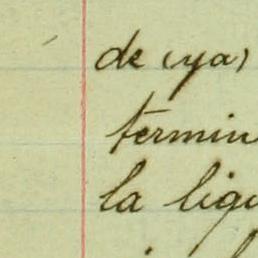 de (ya)
termin
la liqu